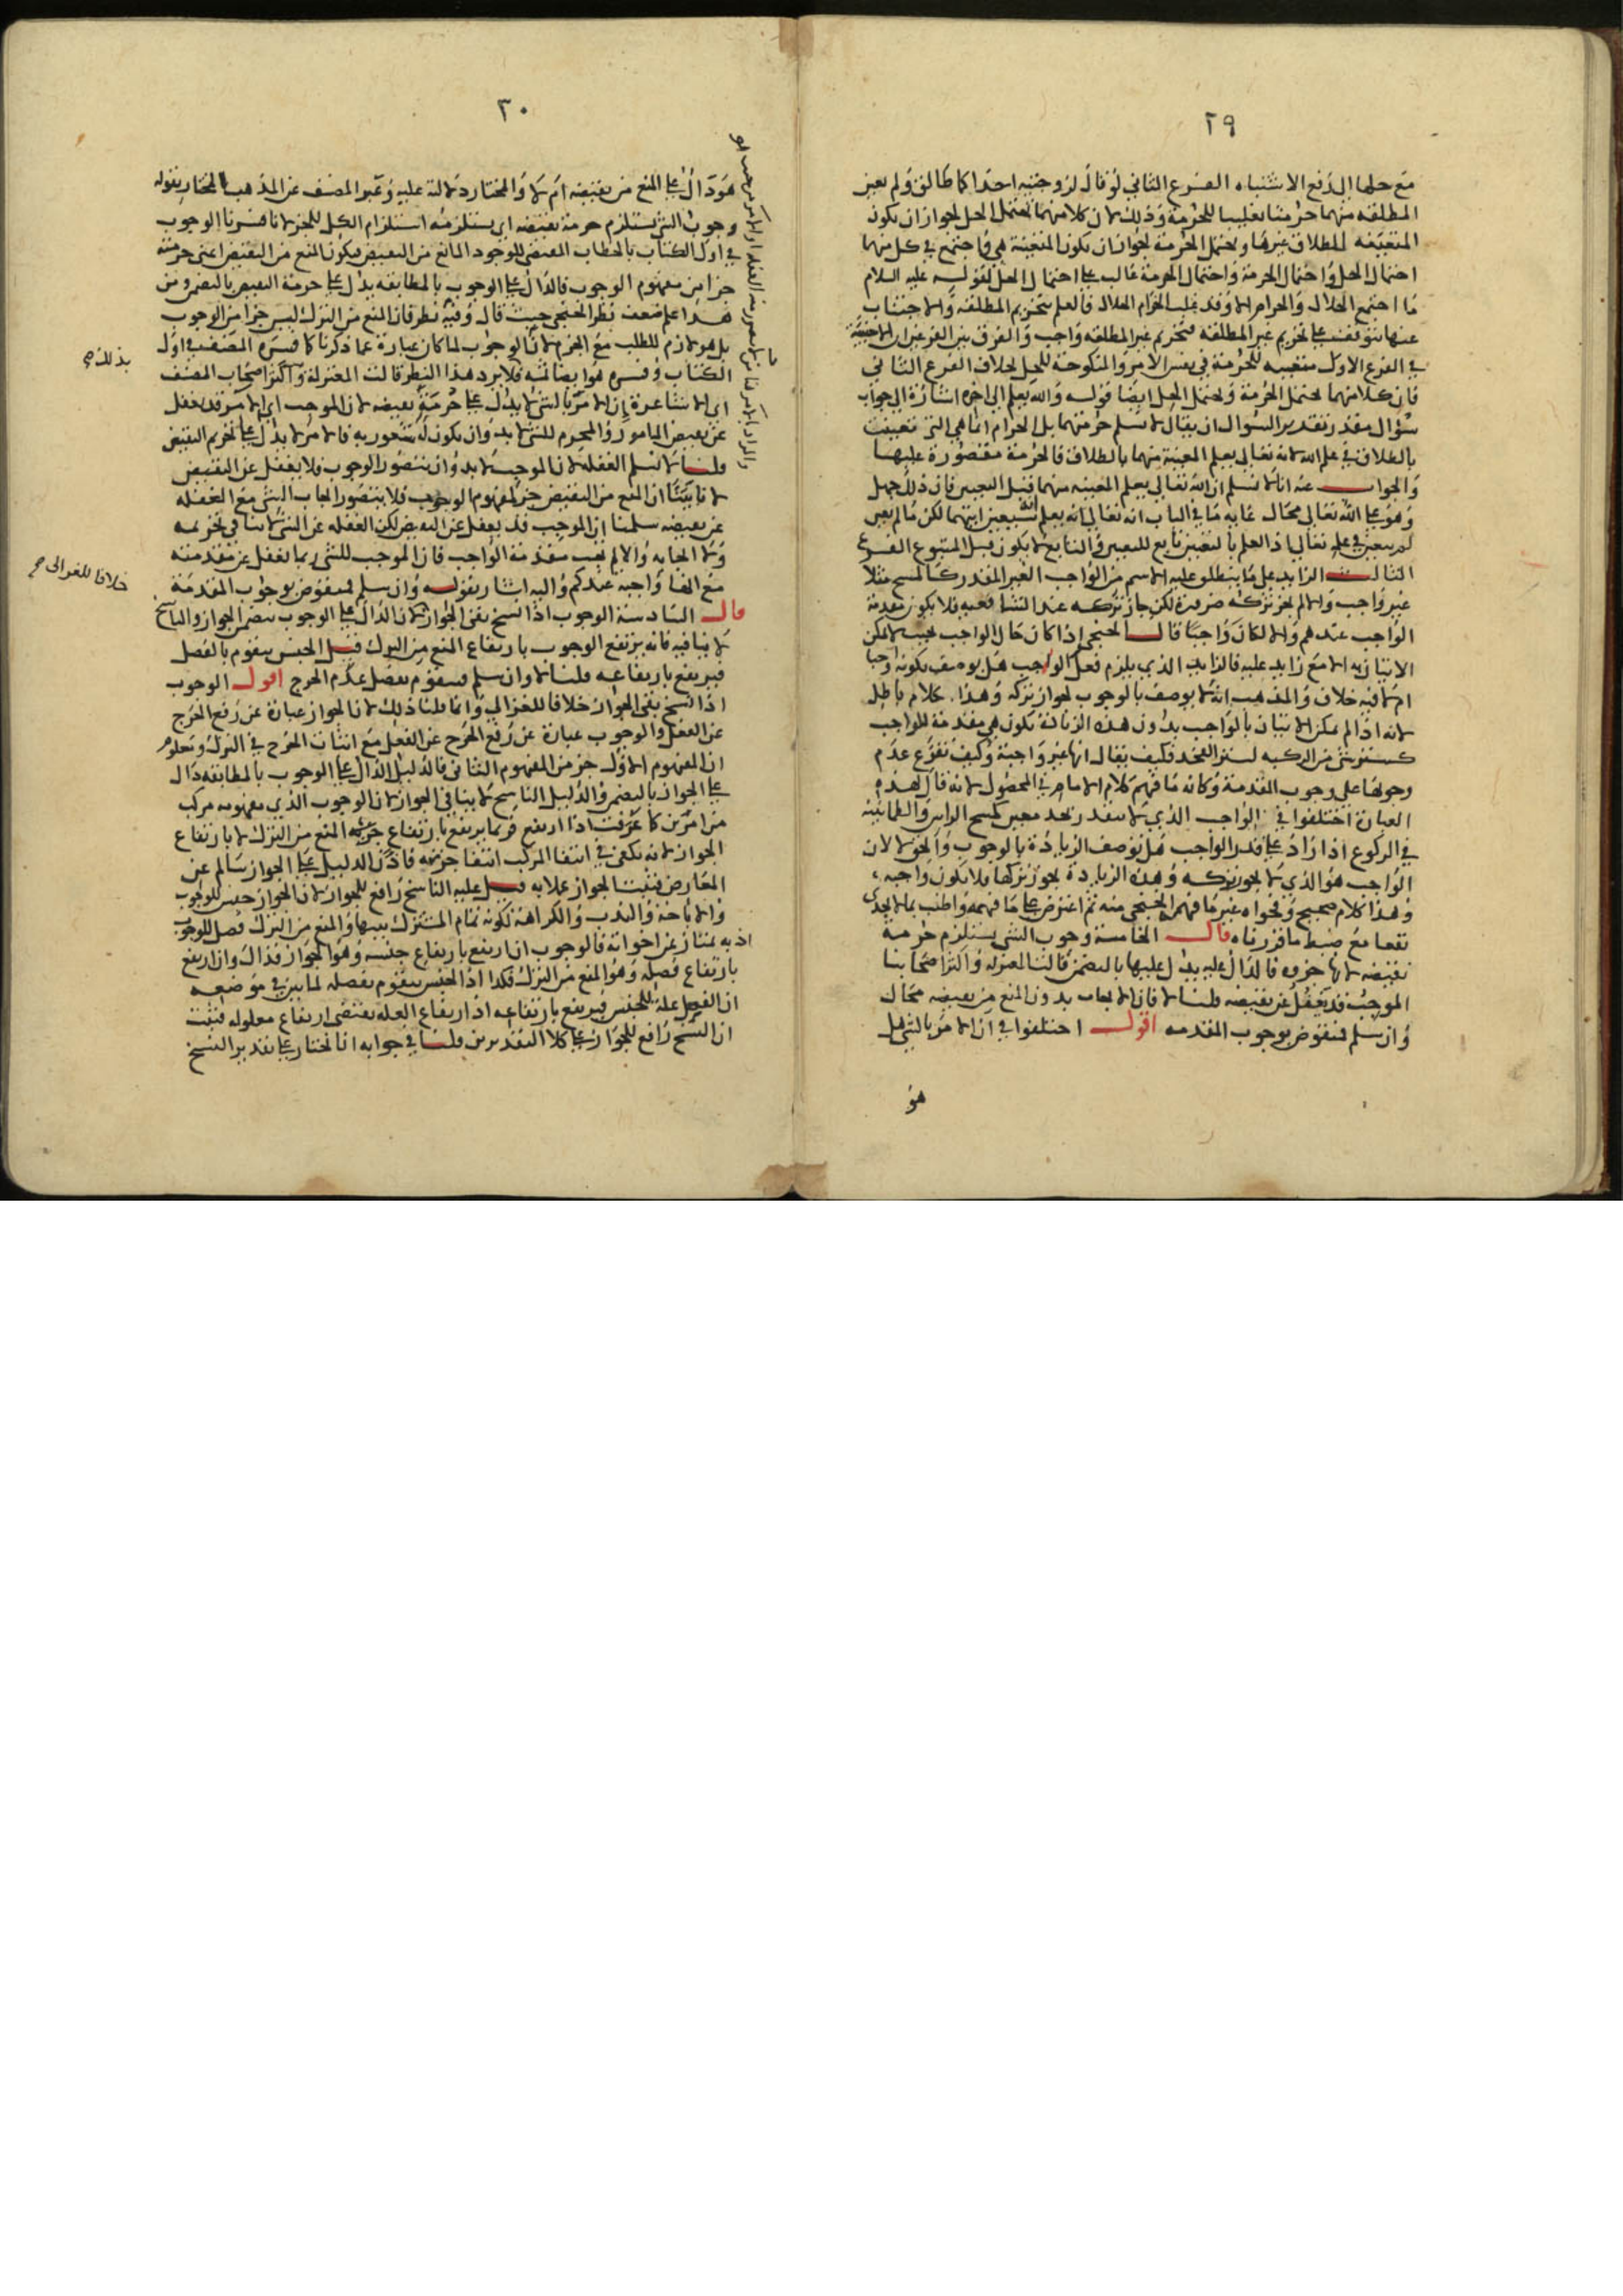 ٢٩
مع حلها الدفع الاشتباه الفرع الثاني لو قال لزوجتيه احداكما طالق ولم يعين
المطلقة منهما حرمتا تغليبا للحرمة وذلك لان كلا منهما يحتمل الحل لجواز ان يكون
المتعينة للطلاق غيرها ويحتمل الحرمة لجواز ان يكون المتعينة هي فاجتمع في كل منهما
احتمال الحل واحتمال الحرمة واحتمال الحرمة غالب على احتمال الحل لقوله عليه السلام
ما اجتمع الحلال والحرام الا وقد غلب الحرام الحلال فالعلم بتحريم المطلقة والاجتناب
عنها يتوقف على تحريم غير المطلقة فتحريم غير المطلقة واجب والفرق بين الفرعين ان الاجنبية
في الفرع الاول متعينة للحرمة في نفس الامر والمنكوحة للحل بخلاف الفرع الثاني
فان كلا منهما يحتمل الحرمة ويحتمل الحل ايضا قوله والله يعلم الى اخره اشارة الى جواب
سؤال مقدر تقدير السؤال ان يقال لا نسلم حرمتهما بل الحرام انما هي التي تعينت
بالطلاق في علم الله لانه تعالى يعلم المعينة منهما بالطلاق فالحرمة مقصورة عليها
والجواب عنه انا لا نسلم ان الله تعالى يعلم المعينة منهما قبل التعيين فان ذلك جهل
وهو على الله تعالى محال غاية ما في الباب انه تعالى انه يعلم انه سيعين ايتهما لكن ما لم يعين
لم يتعين في علم تعالى اذ العلم بالتعيين تابع للتعيين والتابع لا يكون قبل المتبوع الفرع
الثالث الزايد على ما ينطلق عليه الاسم من الواجب الغير المقدر كالمسح مثلا
غير واجب والا لم يجز تركه ضرورة لكن جاز تركه عند
الواجب عندهم والا لكان واجبا قال الخنجي اذا كان حال الواجب بحيث لا يمكن
الاتيان به الا مع زايد عليه فالزايد الذي يلزم فعل الواجب هل يوصف بكونه واجبا
ام لا فيه خلاف والمذهب انه لا يوصف بالوجوب لجواز تركه وهذا كلام باطل
لانه اذا لم يمكن الاتيان بالواجب بدون هذه الزيادة تكون هي مقدمة للواجب
كستر شئ من الركبة لستر الفخذ فكيف يقال انها غير واجبة وكيف تفرع عدم
وجوبها على وجوب المقدمة وكانه ما فهم كلام الامام في المحصول لانه قال لهذه
العبارة اختلفوا في الواجب الذي لا يتقدر بحد معين كمسح الراس والطمانينة
في الركوع اذا زاد على قدر الواجب هل توصف الزيادة بالوجوب والحق لا لان
الواجب هو الذي لا يجوز تركه وهذه الزيادة يجوز تركها فلا يكون واجبة
وهذا كلام صحيح وفحواه غير ما فهم الخنجي منه ثم اعترض على ما فهمه واطنب بما لا يجدي
نفعا مع ضبط ما قررناه قال الخامسة وجوب الشئ يستلزم حرمة
نقيضه لانها جزوه فالدال عليه يدل عليها بالتضمن قالت المعتزلة واكثر اصحابنا
الموجب قد يغفل عن نقيضه قلنا لا فان الايجاب بدون المنع من نقيضه محال
وان سلم فمنقوض بوجوب المقدمه اقول اختلفوا في ان الامر بالشئ هل
هو
٣٠
هو دال على المنع من نقيضه ام لا والمختار دلالته عليه وعبر المصنف عن المذهب المختار بقوله
وجوب الشئ يستلزم حرمة نقيضه اي يستلزمه استلزام الكل للجزء لانا فسرنا الوجوب
في اول الكتاب بالخطاب المقتضى للوجود المانع من النقيض فيكون المنع من النقيض اعني حرمته
جزا من مفهوم الوجوب فالدال على الوجوب بالمطابقة يدل على حرمة النقيض بالتضمن ومن
هذا علم ضعف نظر الخنجي حيث قال وفيه نظر فان المنع من الترك ليس جزا من الوجوب
بل هو لازم للطلب مع الجزم لان الوجوب لما كان عبارة عما ذكرنا كما فسره المصنف في اول
الكتاب وفسره هو ايضا به فلا يرد هذا النظر قالت المعتزلة واكثر اصحاب المصنف
اي الاشاعرة ان الامر بالشئ لا يدل على حرمة نقيضه لان الموجب اي الامر قد يغفل
عن نقيض المامور والمحرم للشئ لا بد وان يكون له شعور به فالامر لا يدل على تحريم النقيض
قلنا لا نسلم الغفلة لان الموجب لا بد وان يتصور الوجوب فلا يغفل عن النقيض
لانا بينا ان المنع من النقيض جزء مفهوم الوجوب فلا يتصور ايجاب الشئ مع الغفله
عن نقيضه سلمنا ان الموجب قد يغفل عن النقيض لكن الغفله عن الشئ لا ينافي تحريمه
ولا ايجابه والا لم يجب مقدمة الواجب فان الموجب للشئ ربما يغفل عن مقدمته
مع انها واجبه عندكم واليه اشار بقوله وان سلم فمنقوض بوجوب المقدمة
قال السادسة الوجوب اذا نسخ بقي الجواز لان الدال على الوجوب يتضمن الجواز والناسخ
لا ينافيه فانه يرتفع الوجوب بارتفاع المنع من الترك قيل الجنس يتقوم بالفصل
فيرتفع بارتفاعه قلنا لا وان سلم فيتقوم بفصل عدم الحرج اقول الوجوب
اذا نسخ بقي الجواز خلافا للغزالي وانما قلنا ذلك لان الجواز عبارة عن رفع الحرج
عن الفعل والوجوب عبارة عن رفع الحرج عن الفعل مع اثبات الحرج في الترك ومعلوم
ان المفهوم الاول جزء من المفهوم الثاني فالدليل الدال على الوجوب بالمطابقه دال
على الجواز بالتضمن والدليل الناسخ لا ينافي الجواز لان الوجوب الذي مفهومه مركب
من امرين كما عرفت اذا ارتفع فربما يرتفع بارتفاع جزئه المنع من الترك لا بارتفاع
الجواز لانه يكفي في انتفا المركب انتفا جزئه فاذن الدليل على الجواز سالم عن
المعارض فيثبت الجواز عملا به قيل عليه الناسخ رافع للجواز لان الجواز جنس للوجوب
والاباحة والندب والكراهة لكونه تمام المشترك بينها والمنع من الترك فصل للوجوب
اذ به يمتاز عن اخواته فالوجوب ان ارتفع بارتفاع جنسه وهو الجواز فذاك وان ارتفع
بارتفاع فصله وهو المنع من الترك فكذا اذ الجنس يتقوم بفصله لما بين في موضعه
ان الفصل علة للجنس فيرتفع بارتفاعه اذ ارتفاع العلة يقتضي ارتفاع معلوله فثبت
ان النسخ رافع للجواز على كلا التقديرين قلنا في جوابه انا نختار على تقدير النسخ
بذلك صح
خلافا للغزالي صح